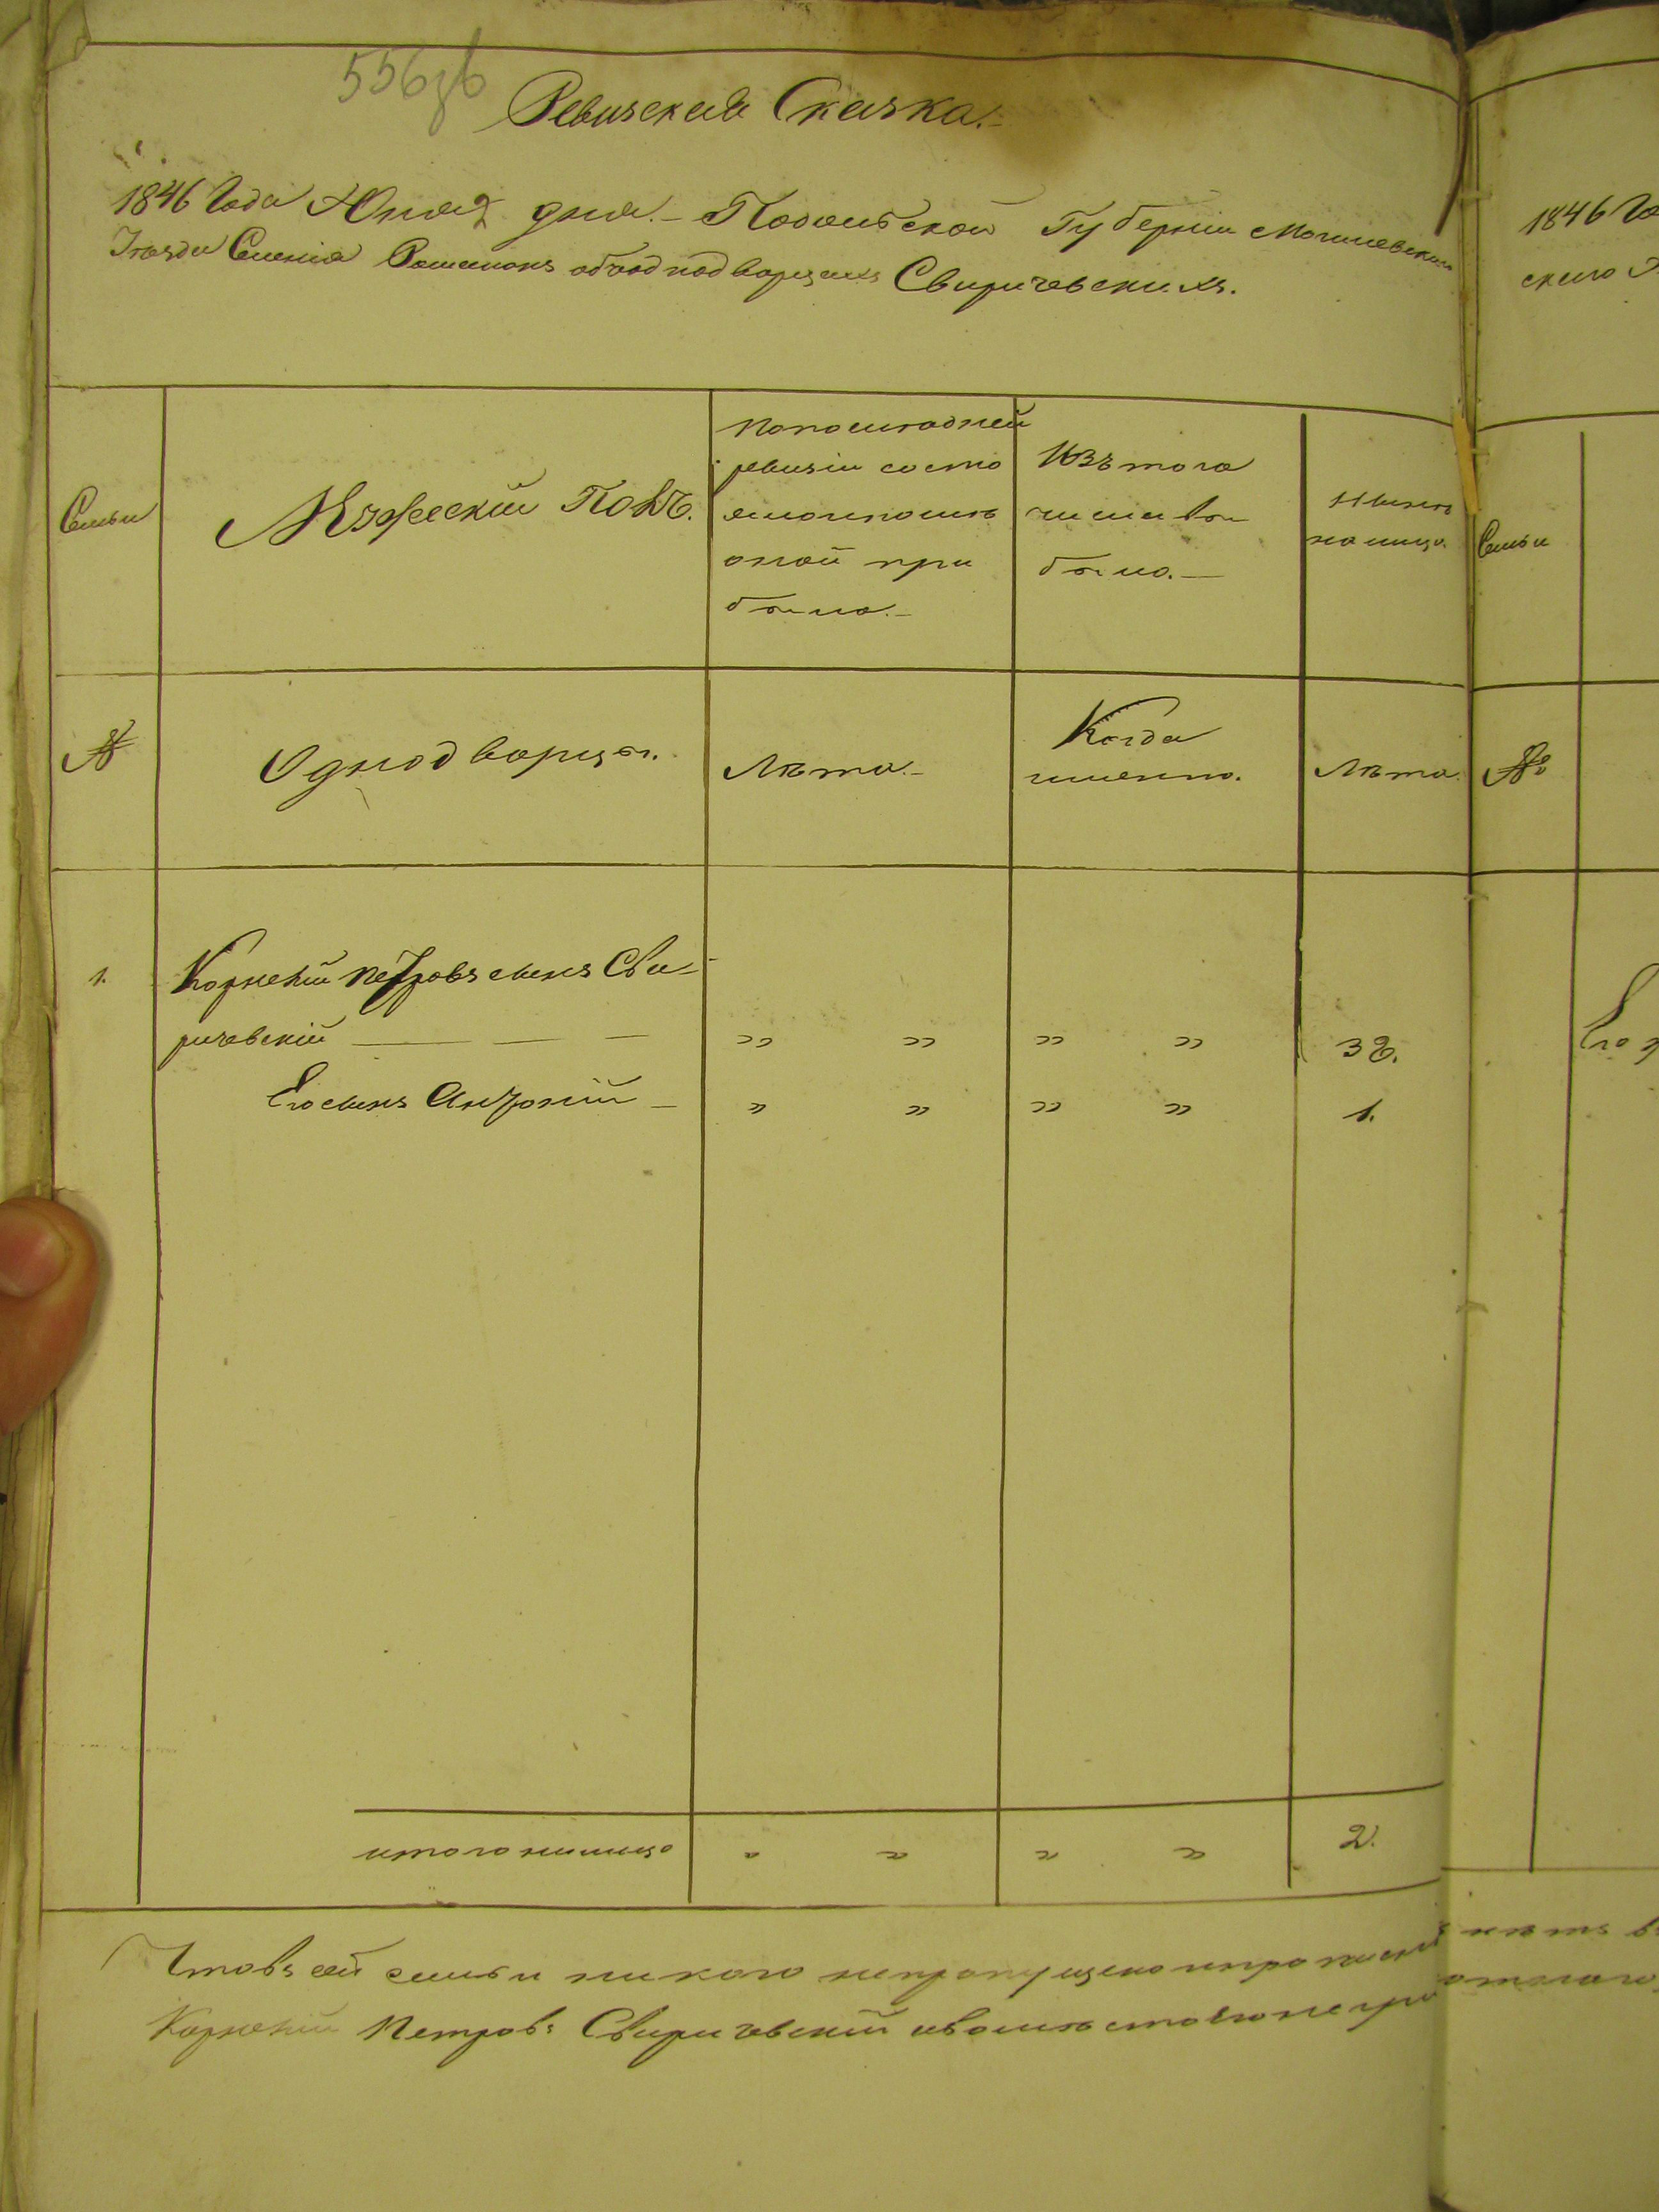 556 зв
Ревизская Сказка.
1846 Года Юня 2 дня. Подольской Губерніи Могилевского
Уѣзда Селенія об однодворцахъ Свиричевскихъ.
1846 Го
ского
Семьи
Мужескій Полъ.
По последней
ревизіи состо
яло и после
оной при
было.
Изъ того
числа вы
было.
Нынѣ
на лицо.
Семьи
№
Однодворцы.
Лѣта.
Когда
именно.
Лѣта.
№
1.
Корнелій Петровъ сынъ Сви-
ричевскій — — — „ „ „ „ 32.
Его сынъ Антоній — „ „ „ „ 1.
Его
итого на лицо „ „ „ „ 2.
Что въ сей семьи никого не пропущено и прописныхъ нѣтъ в
Корнелій Петровъ Свиричевскій